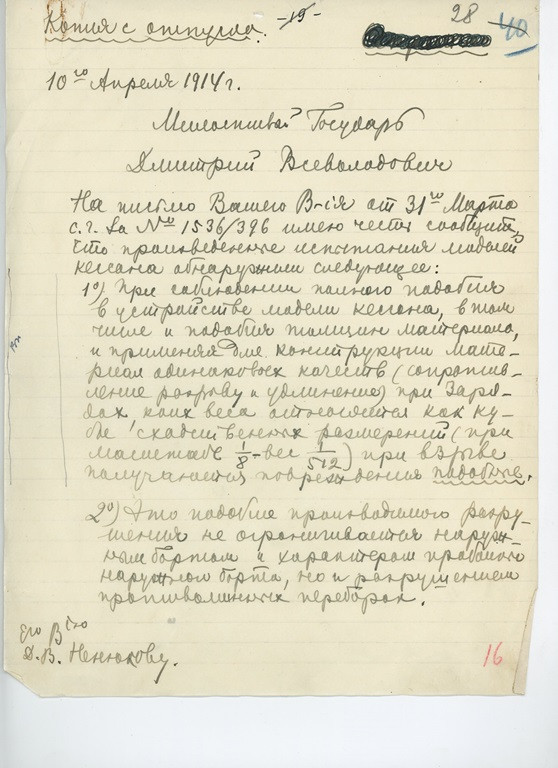 Копия с отпуска.
19
28
40
10го Апреля 1914 г.
Милостивый Государь
Дмитрий Всеволодович
На письмо Вашего В-ія от 31го Марта
с.г. за № 1536/396 имею честь сообщить,
что произведенные испытания моделей
кессона обнаружили следующее:
1о) При соблюдении полного подобия
в устройстве модели кессона, в том
числе и подобия толщин материала,
и применяя для конструкции мате-
риал одинаковых качеств (сопротив-
ление разрыву и удлинение) при заря-
дах коих веса относятся как ку-
бы сходственных размерений (при
масштабе 1/8 - вес 1/512) при взрыве
получаются повреждения подобные.
2о) Это подобие производимого разру-
шения не ограничивается наруж-
ным бортом и характером пробоины
наружного борта, но и разрушением
противоминных переборок.
Его Вству
Д. В. Ненюкову.
16